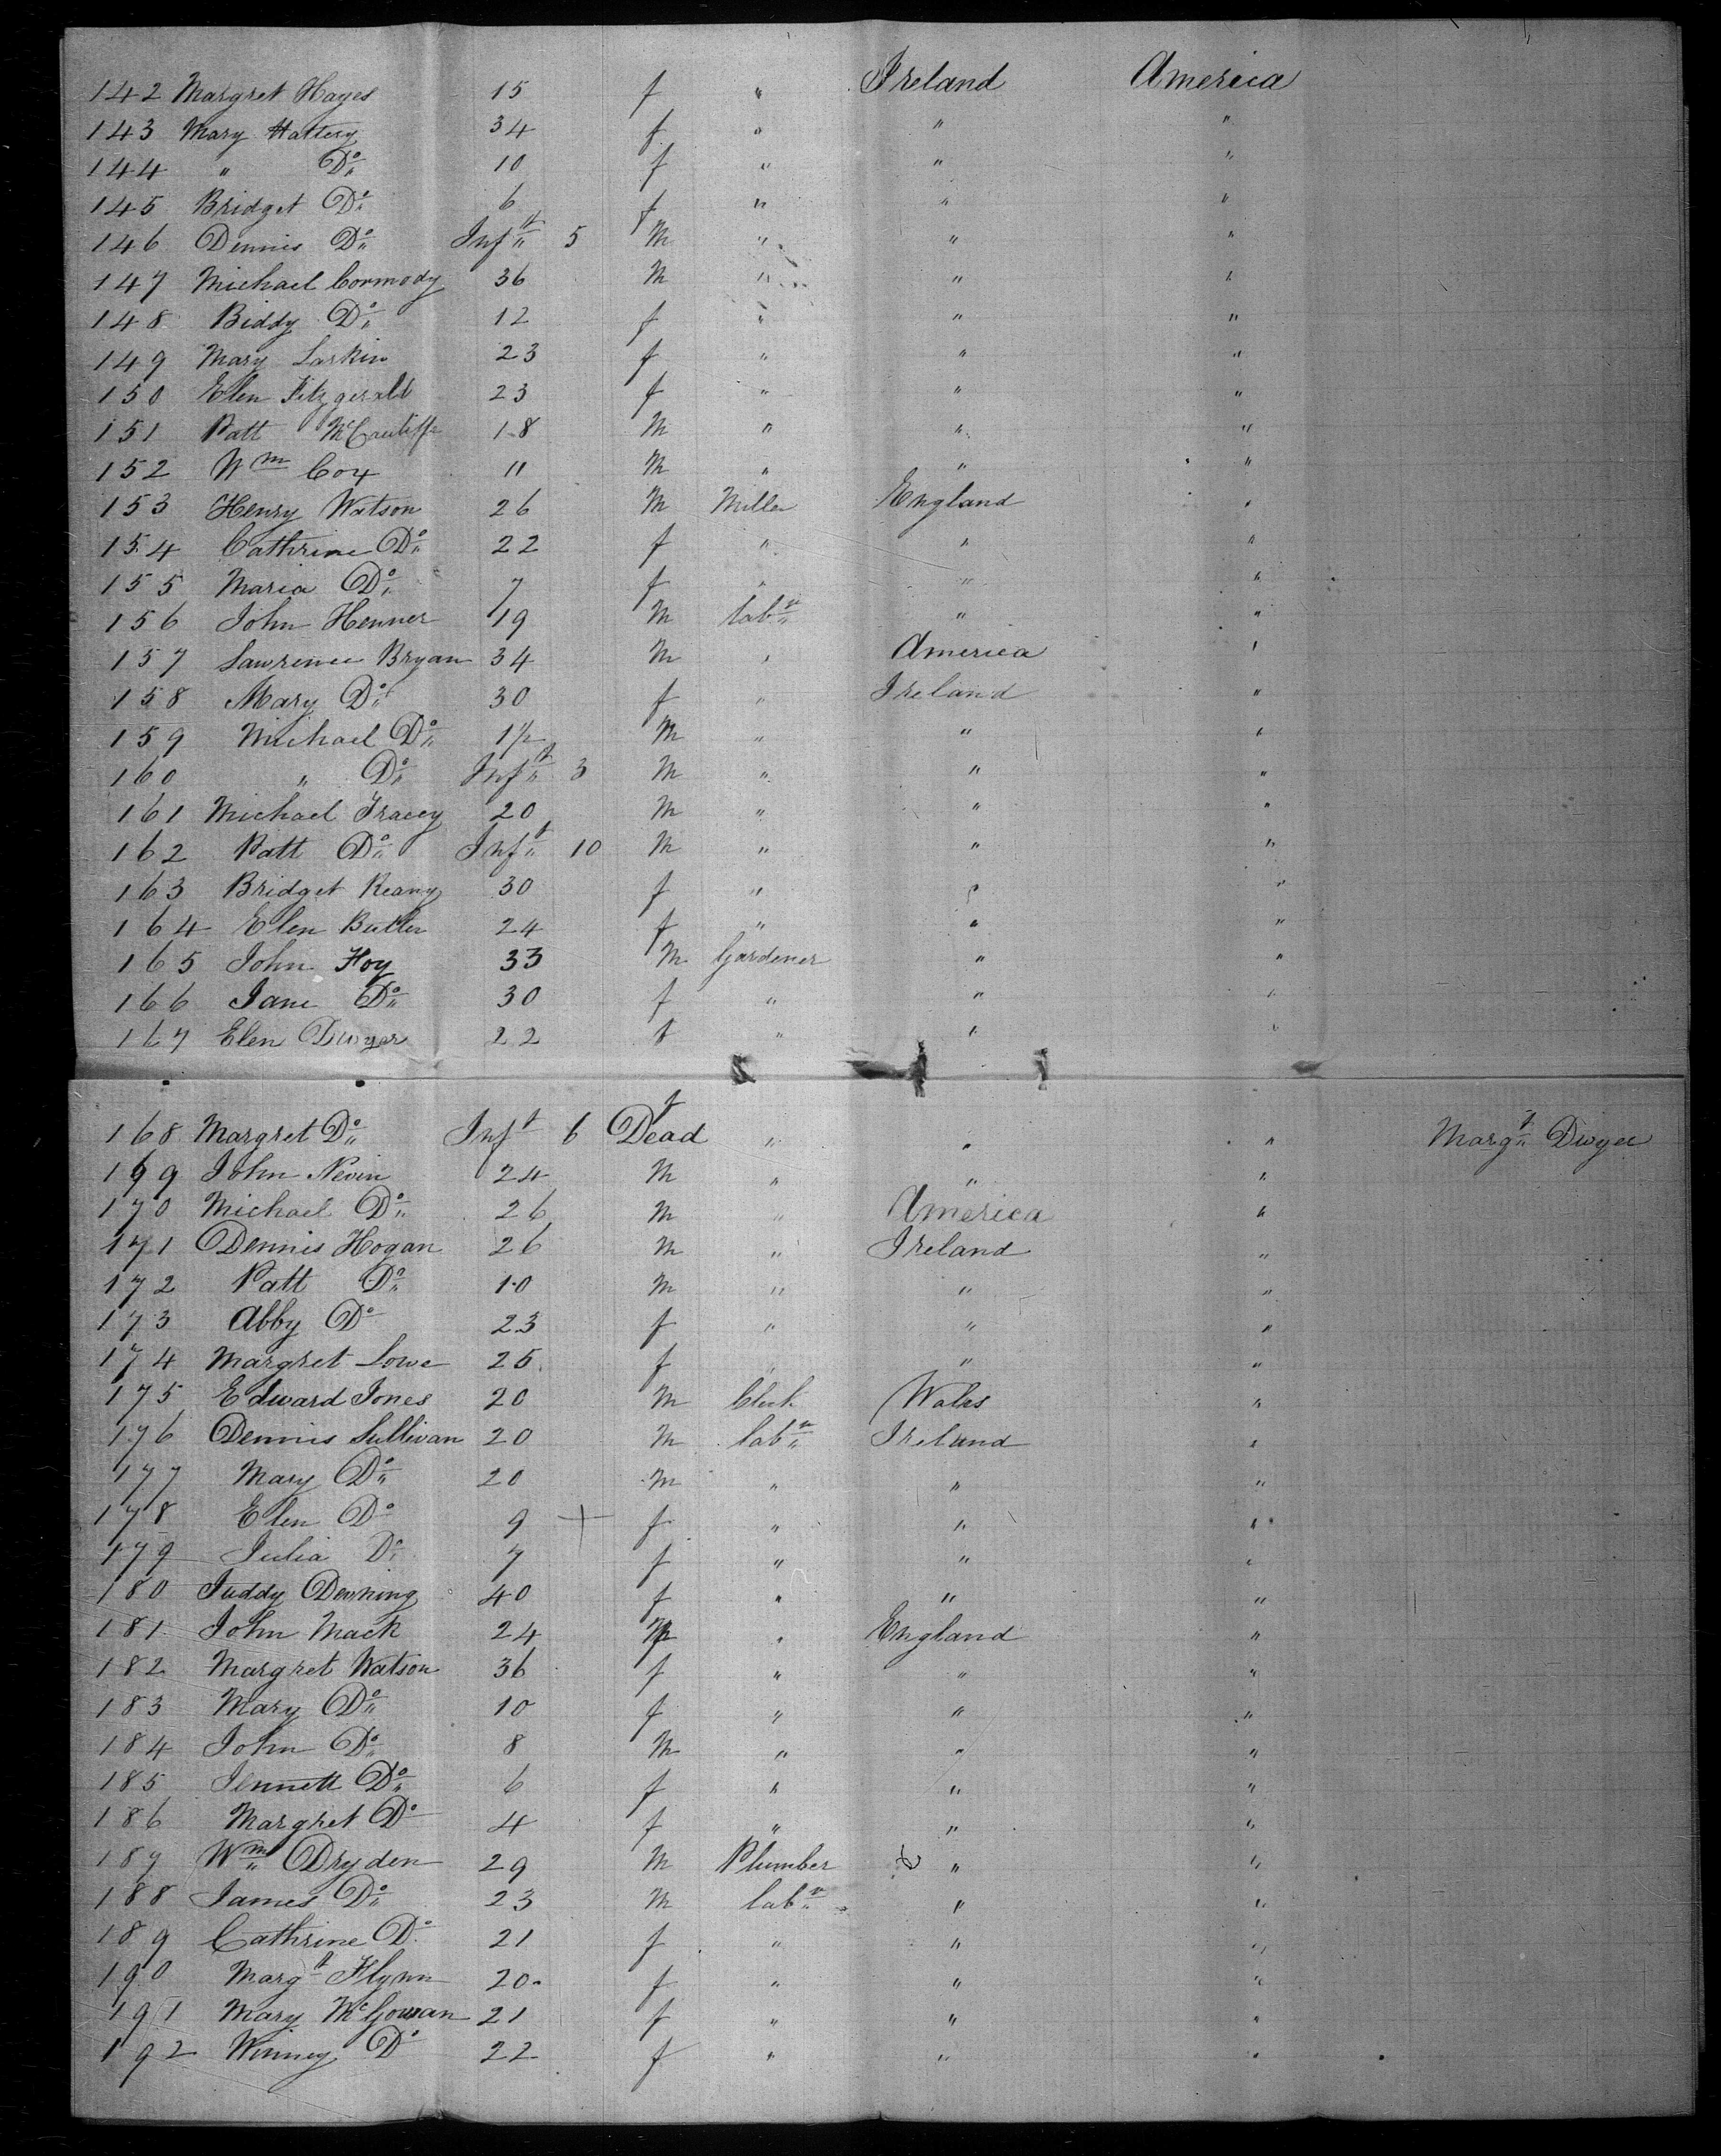 142 Margret Hayes 15 f " Ireland America
143 Mary Hattery 34 f " " "
144 " Do 10 f " " "
145 Bridget Do 6 f " " "
146 Dennis Do Inft 5 M " " "
147 Michael Cormody 36 M " " "
148 Biddy Do 12 f " " "
149 Mary Larkin 23 f " " "
150 Elen Fitzgerald 23 f " " "
151 Patt McCauliffe 18 M " " "
152 Wm Cox 11 M " " "
153 Henry Watson 26 M Miller England "
154 Cathrine Do 22 f " " "
155 Maria Do 7 f " " "
156 John Henner 19 M labr " "
157 Lawrence Bryan 34 M " America "
158 Mary Do 30 f " Ireland "
159 Michael Do 1½ M " " "
160 " Do Inft 3 M " " "
161 Michael Tracey 20 M " " "
162 Patt Do Inft 10 M " " "
163 Bridget Keany 30 f " " "
164 Elen Butler 24 f " " "
165 John Hoy 33 M Gardener " "
166 Jane Do 30 f " " "
167 Elen Dwyer 22 f " " "
168 Margret Do Inft 6 f Dead " " " Margt Dwyer
169 John Nevin 24 M " " "
170 Michael Do 26 M " America "
171 Dennis Hogan 26 M " Ireland "
172 Patt Do 10 M " " "
173 Abby Do 23 f " " "
174 Margret Lowe 25 f " " "
175 Edward Jones 20 M Clerk Wales "
176 Dennis Sullivan 20 M labr Ireland "
177 Mary Do 20 M " " "
178 Elen Do 9 + f " " "
179 Julia Do 7 f " " "
180 Juddy Denning 40 f " " "
181 John Mack 24 M " England "
182 Margret Watson 36 f " " "
183 Mary Do 10 f " " "
184 John Do 8 M " " "
185 Jennett Do 6 f " " "
186 Margret Do 4 f " " "
187 Wm Dryden 29 M Plumber " "
188 James Do 23 M labr " "
189 Cathrine Do 21 f " " "
190 Margt Flynn 20 f " " "
191 Mary McGowan 21 f " " "
192 Winney Do 22 f " " "